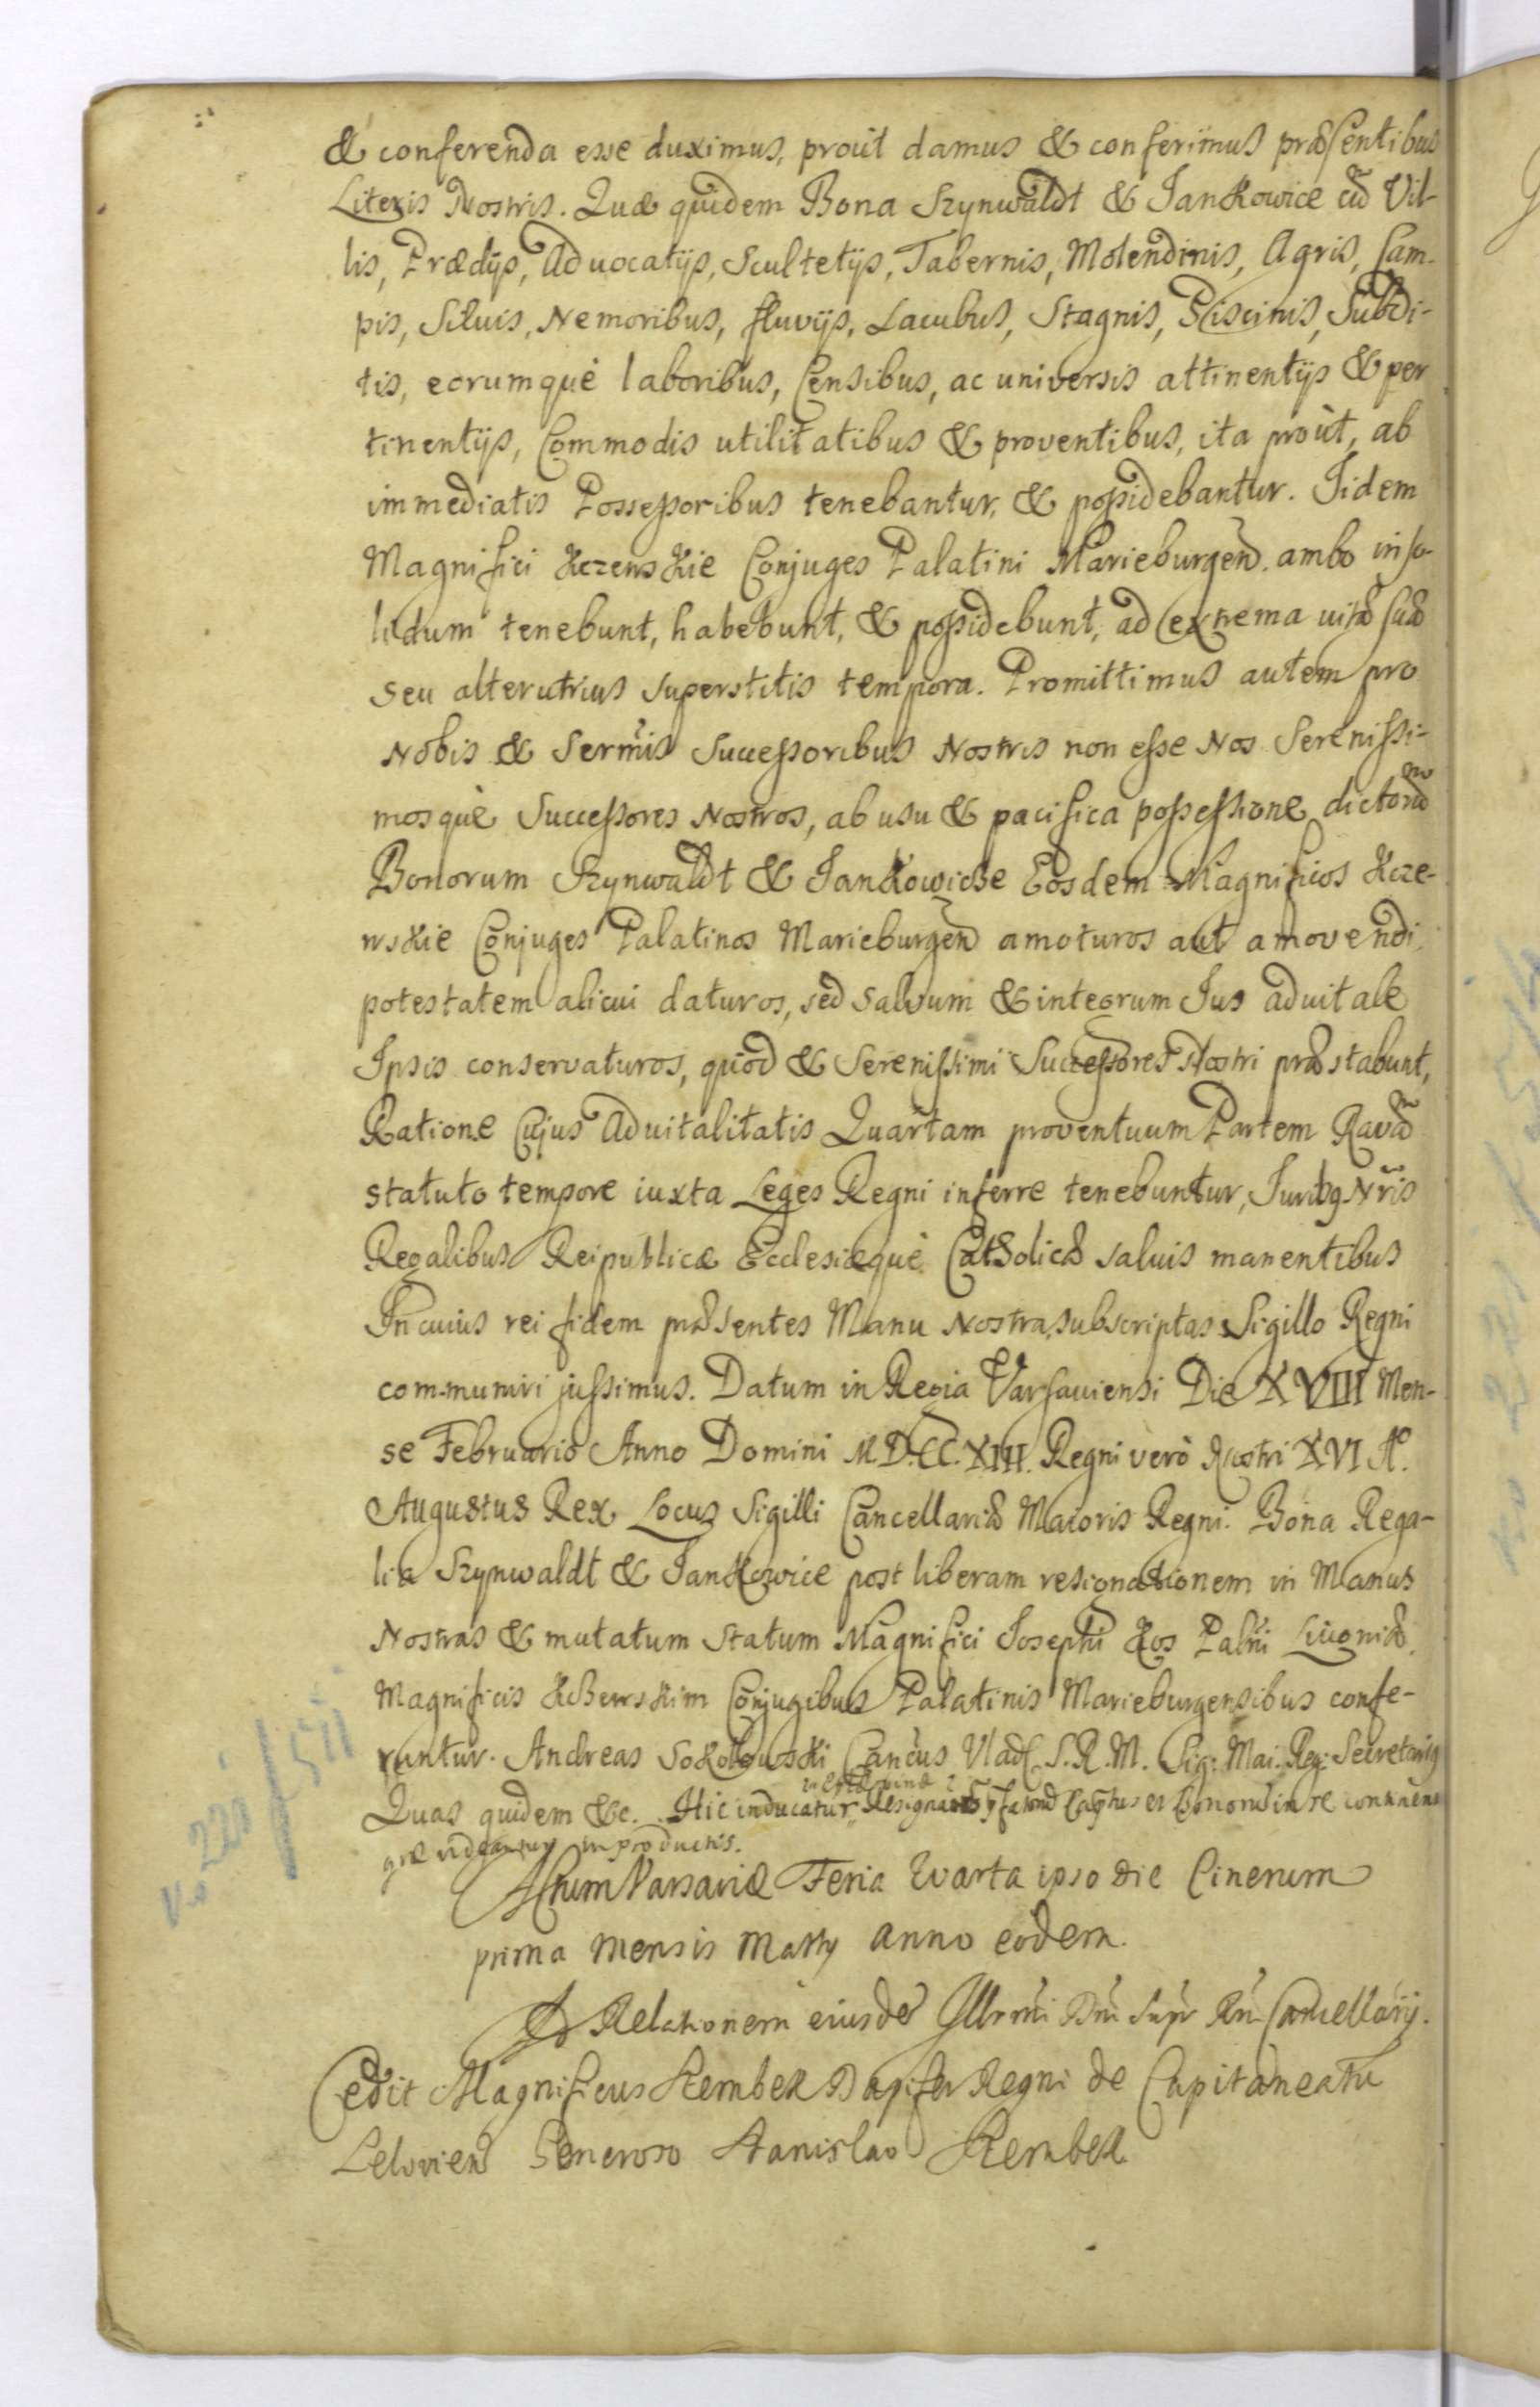 & conferenda esse duximus, prout damus & conferimus præsentibus
Literis Nostris. Quæ quidem Bona Szynwaldt & Jankowice cũ Vil-
lis, Prædijs, Advocatijs, Scultetijs, Tabernis, Molendinis, Agris, Cam-
pis, Siluis, Nemoribus, fluvijs, Lacubus, Stagnis, Piscinis, Subdi-
tis, eorumquè laboribus, Censibus, ac universis attinentijs & per
tinentijs, Commodis utilitatibus & proventibus, ita proùt, ab
immediatis Possessoribus tenebantur, & possidebantur. Iidem
Magnifici Kczewskie Conjuges Palatini Marieburgen. ambo in so-
lidum tenebunt, habebunt, & possidebunt, ad extrema vitæ suæ
seu alterutrius superstitis tempora. Promittimus autem pro
Nobis & Sermis Successoribus Nostris non esse Nos Serenissi-
mosquè Successores Nostros, ab usu & pacifica possessione dictorũ
Bonorum Szynwaldt & Jankowicze Eosdem Magnificos Kcze-
wskie Conjuges Palatinos Marieburgen amoturos aut amovendi
potestatem alicui daturos, sed salvum & integrum Jus advitale
Ipsis conservaturos, quod & Serenissimi Successores Nostri præstabunt,
Ratione Cujus Advitalitatis Quartam proventuum Partem Ravã
statuto tempore iuxta Leges Regni inferre tenebuntur, Juribq Nris
Regalibus Reipublicæ Ecclesiæquè Catholicæ salvis manentibus
In cuius rei fidem præsentes Manu Nostra subscriptas Sigillo Regni
communiri jussimus. Datum in Regia Varsaviensi Die XVIII Men-
se Februario Anno Domini M.D.CC.XIII. Regni verò Nostri XVI Aº.
Augustus Rex Locus Sigilli Cancellariæ Maioris Regni. Bona Rega-
lia Szynwaldt & Jankowice post liberam resignationem in Manus
Nostras & mutatum statum Magnifici Josephi Kos Palni Livoniæ
Magnificis Kczewskim Conjugibus Palatinis Marieburgensibus confe-
runtur. Andreas Sokołowski Cancus Vlad. S.R.M. Sig: Mai. Reg: Secretariq
Quas quidem &c. Hic inducatur Bonorũ in se continens
quæ videantur in productis.
Actum Varsaviæ Feria Quarta ipso die Cinerum
prima Mensis Martij anno eodem.
Ad Relationem eiusdẽ Illrmi Dni Supr Rni Cancellarij.
Cedit Magnificus Szembek Dapifer Regni de Capitaneatu
Lelovien Generoso Stanislao Szembek